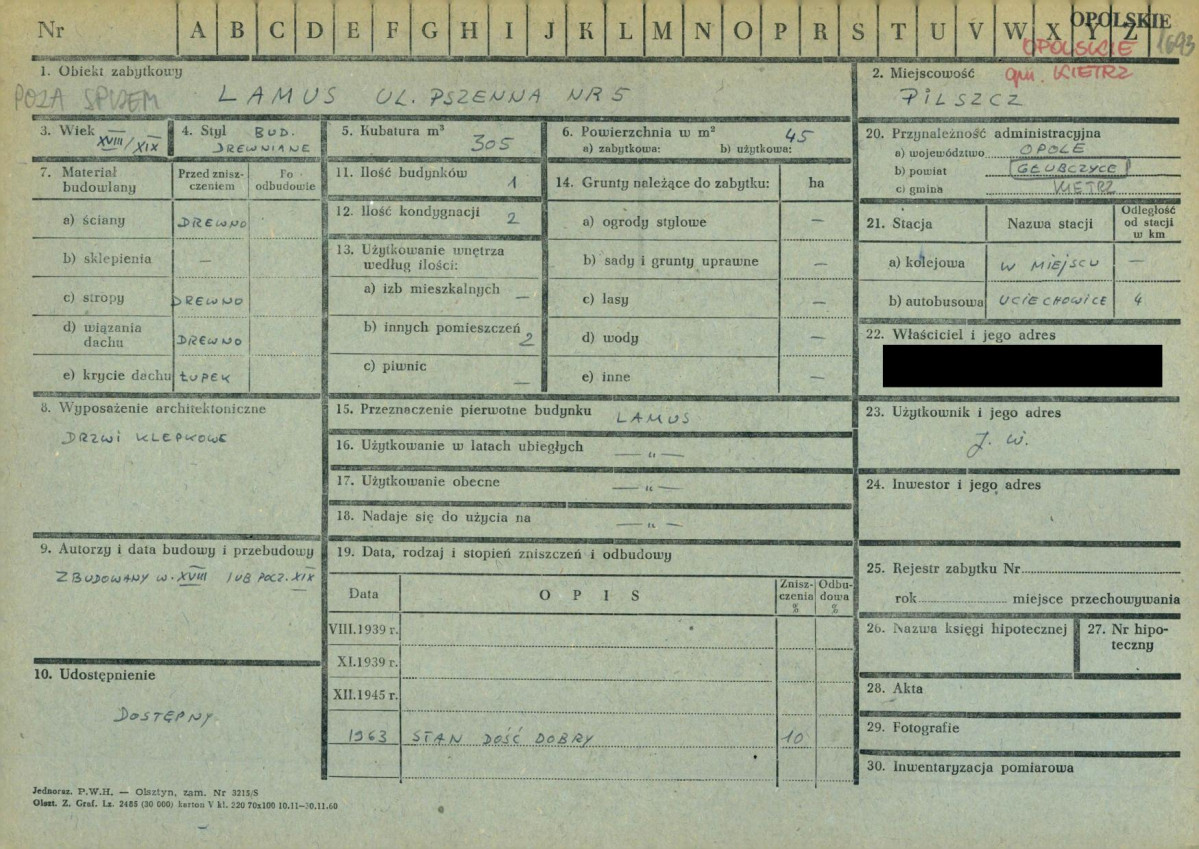 Nr A B C D E F G H I J K L M N O P R S T U V W X Y Z
OPOLSKIE
1693
OPOLSKIE
gm. KIETRZ
1. Obiekt zabytkowy
POZA SPISEM
LAMUS UL. PSZENNA NR 5
2. Miejscowość
PILSZCZ
3. Wiek XVIII/XIX
4. Styl BUD. DREWNIANE
5. Kubatura m³ 305
6. Powierzchnia w m² 45
a) zabytkowa: b) użytkowa:
7. Materiał budowlany
Przed zniszczeniem
Po odbudowie
a) ściany DREWNO
b) sklepienia —
c) stropy DREWNO
d) wiązania dachu DREWNO
e) krycie dachu ŁUPEK
8. Wyposażenie architektoniczne
DRZWI KLEPKOWE
9. Autorzy i data budowy i przebudowy
ZBUDOWANY W. XVIII LUB POCZ. XIX
10. Udostępnienie
DOSTĘPNY.
11. Ilość budynków 1
12. Ilość kondygnacji 2
13. Użytkowanie wnętrza według ilości:
a) izb mieszkalnych —
b) innych pomieszczeń 2
c) piwnic —
14. Grunty należące do zabytku: ha
a) ogrody stylowe —
b) sady i grunty uprawne —
c) lasy —
d) wody —
e) inne —
15. Przeznaczenie pierwotne budynku LAMUS
16. Użytkowanie w latach ubiegłych — „ —
17. Użytkowanie obecne — „ —
18. Nadaje się do użycia na — „ —
19. Data, rodzaj i stopień zniszczeń i odbudowy
Data OPIS Zniszczenia % Odbudowa %
VIII.1939 r.
XI.1939 r.
XII.1945 r.
1963 STAN DOŚĆ DOBRY 10
20. Przynależność administracyjna
a) województwo OPOLE
b) powiat GŁUBCZYCE
c) gmina KIETRZ
21. Stacja Nazwa stacji Odległość od stacji w km
a) kolejowa W MIEJSCU —
b) autobusowa UCIECHOWICE 4
22. Właściciel i jego adres
23. Użytkownik i jego adres
J. W.
24. Inwestor i jego adres
25. Rejestr zabytku Nr
rok miejsce przechowywania
26. Nazwa księgi hipotecznej
27. Nr hipoteczny
28. Akta
29. Fotografie
30. Inwentaryzacja pomiarowa
Jednoraz. P.W.H. — Olsztyn, zam. Nr 3215/S
Olszt. Z. Graf. Lz. 2485 (30 000) karton V kl. 220 70x100 10.11—30.11.60